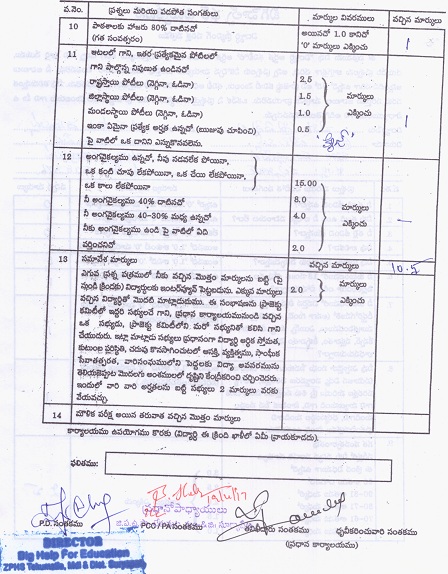 వ.నెం. ప్రశ్నలు మరియు పదపోత సంగతులు మార్కుల వివరములు వచ్చిన మార్కులు
10 పాఠశాలకు హాజరు 80% దాటినచో అయినచో 1.0 కానిచో 1
(గత సంవత్సరం) '0' మార్కులు ఎక్కించు
11 ఆటలలో గాని, ఇతర ప్రత్యేకమైన పోటీలలో
గాని పాల్గొన్న నిపుణుత ఉండినచో
రాష్ట్రస్థాయి పోటీలు (నెగ్గినా, ఓడినా) 2.5
జిల్లాస్థాయి పోటీలు (నెగ్గినా, ఓడినా) 1.5 మార్కులు
మండలస్థాయి పోటీలు (నెగ్గినా, ఓడినా) 1.0 ఎక్కించు 1
ఇంకా ఏమైనా ప్రత్యేక అర్హత ఉన్నచో (ఋజువు చూపించి) 0.5
పై వాటిలో ఒక దానిని ఎన్నుకొనవలెను.
12 అంగవైకల్యము ఉన్నచో, నీవు నడవలేక పోయినా,
ఒక కంటి చూపు లేకపోయినా, ఒక చేయి లేకపోయినా,
ఒక కాలు లేకపోయినా 15.00
నీ అంగవైకల్యము 40% దాటినచో 8.0 మార్కులు
నీ అంగవైకల్యము 40-30% మధ్య ఉన్నచో 4.0 ఎక్కించు —
నీకు అంగవైకల్యము ఉండి పై వాటిలో ఏది
వర్తించనిచో 2.0
13 సమావేశ మార్కులు వచ్చిన మార్కులు 10.5
ఎగువ ప్రశ్న పత్రములో నీకు వచ్చిన మొత్తం మార్కులను బట్టి (పై
నుండి క్రిందకు) విద్యార్థులకు ఇంటర్వ్యూస్ పెట్టబడును. ఎక్కువ మార్కులు 2.0 మార్కులు
వచ్చిన విద్యార్థితో మొదటి మాట్లాడుదుము. ఈ సంభాషణను ప్రాజెక్టు ఎక్కించు
కమిటీలో ఇద్దరి సభ్యులచే గాని, ప్రధాన కార్యాలయమునుండి వచ్చిన
ఒక సభ్యుడు, ప్రాజెక్టు కమిటీలోని మరో సభ్యునితో కలిసి గాని
చేయుదురు. ఇట్లా మాట్లాడు సభ్యులు ప్రధానంగా విద్యార్థి ఆర్థిక స్తోమత,
కుటుంబ పరిస్థితి, చదువు కొనసాగించుటలో ఆసక్తి, వ్యక్తిత్వము, సాంఘిక
ఇందులో వారి వారి అర్హతలను బట్టి సభ్యులు 2 మార్కులు వరకు
వేయవచ్చు.
14 మౌలిక పరీక్ష అయిన తరువాత వచ్చిన మొత్తం మార్కులు
కార్యాలయము ఉపయోగము కొరకు (విద్యార్థి ఈ క్రింది ఖాళీలో ఏమీ వ్రాయకూడదు).
ఫలితము:
ప్రధానోపాధ్యాయులు
P.D. సంతకము PDO / PA సంతకము తనిఖీదారు సంతకము ధృవీకరించువారి సంతకము
(ప్రధాన కార్యాలయము)
DIRECTOR
Big Help For Education